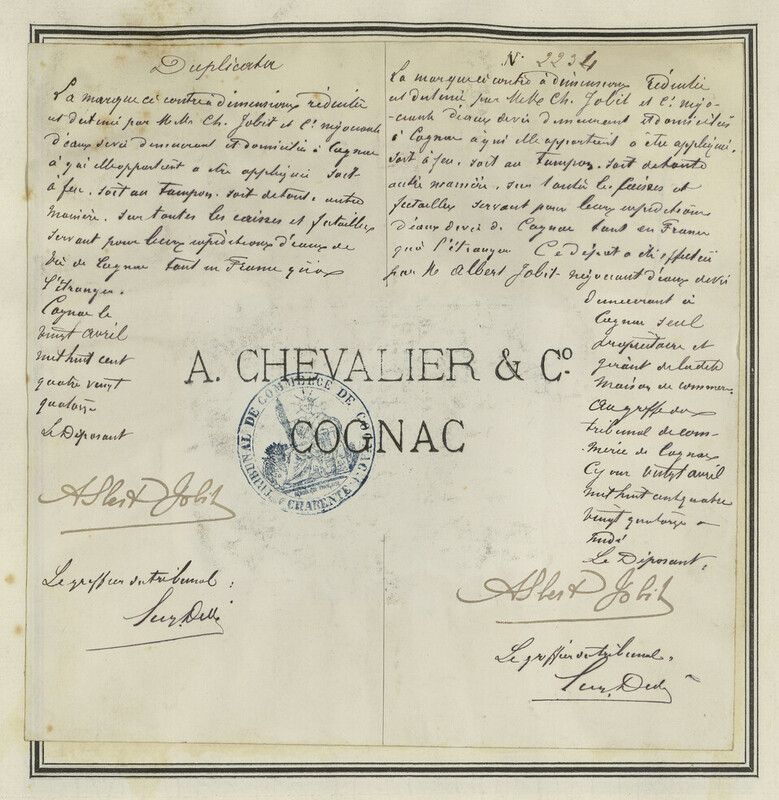 Duplicata
La marque ci contre à dimensions réduites
est destinée par MM. Ch. Jobit et Cie négociants
d'eaux devie demeurant et domiciliés à Cognac
à qui elle appartient a etre appliqué soit
à feu, soit au tampon, soit de toute autre
manière, sur toutes les caisses et futailles
servant pour leurs expéditions d'eaux de
vie de Cognac tant en France qu'à
l'étranger.
Cognac le
vingt avril
mil huit cent
quatre vingt
quatorze
Le Déposant
Albert Jobit
Le greffier du tribunal :
N° 2234
La marque ci contre à dimensions réduites
est destinée par MM. Ch. Jobit et Cie négo-
ciants d'eaux devie demeurant et domiciliés
à Cognac à qui elle appartient à être appliqué,
soit à feu, soit au tampon, soit de toute
autre manière, sur toutes les caisses et
futailles servant pour leurs expéditions
d'eaux devie de Cognac tant en France
qu'à l'étranger Ce dépôt a été effectué
par M Albert Jobit négociant d'eaux devie
demeurant à
Cognac seul
propriétaire et
gérant de ladite
maison de commerce
au greffe du
tribunal de com-
merce de Cognac
Ce jour vingt avril
mil huit cent quatre
vingt quatorze à
midi
Le Déposant,
Albert Jobit
Le greffier du tribunal,
A. CHEVALIER & Cº.
COGNAC
TRIBUNAL DE COMMERCE DE COGNAC
CHARENTE